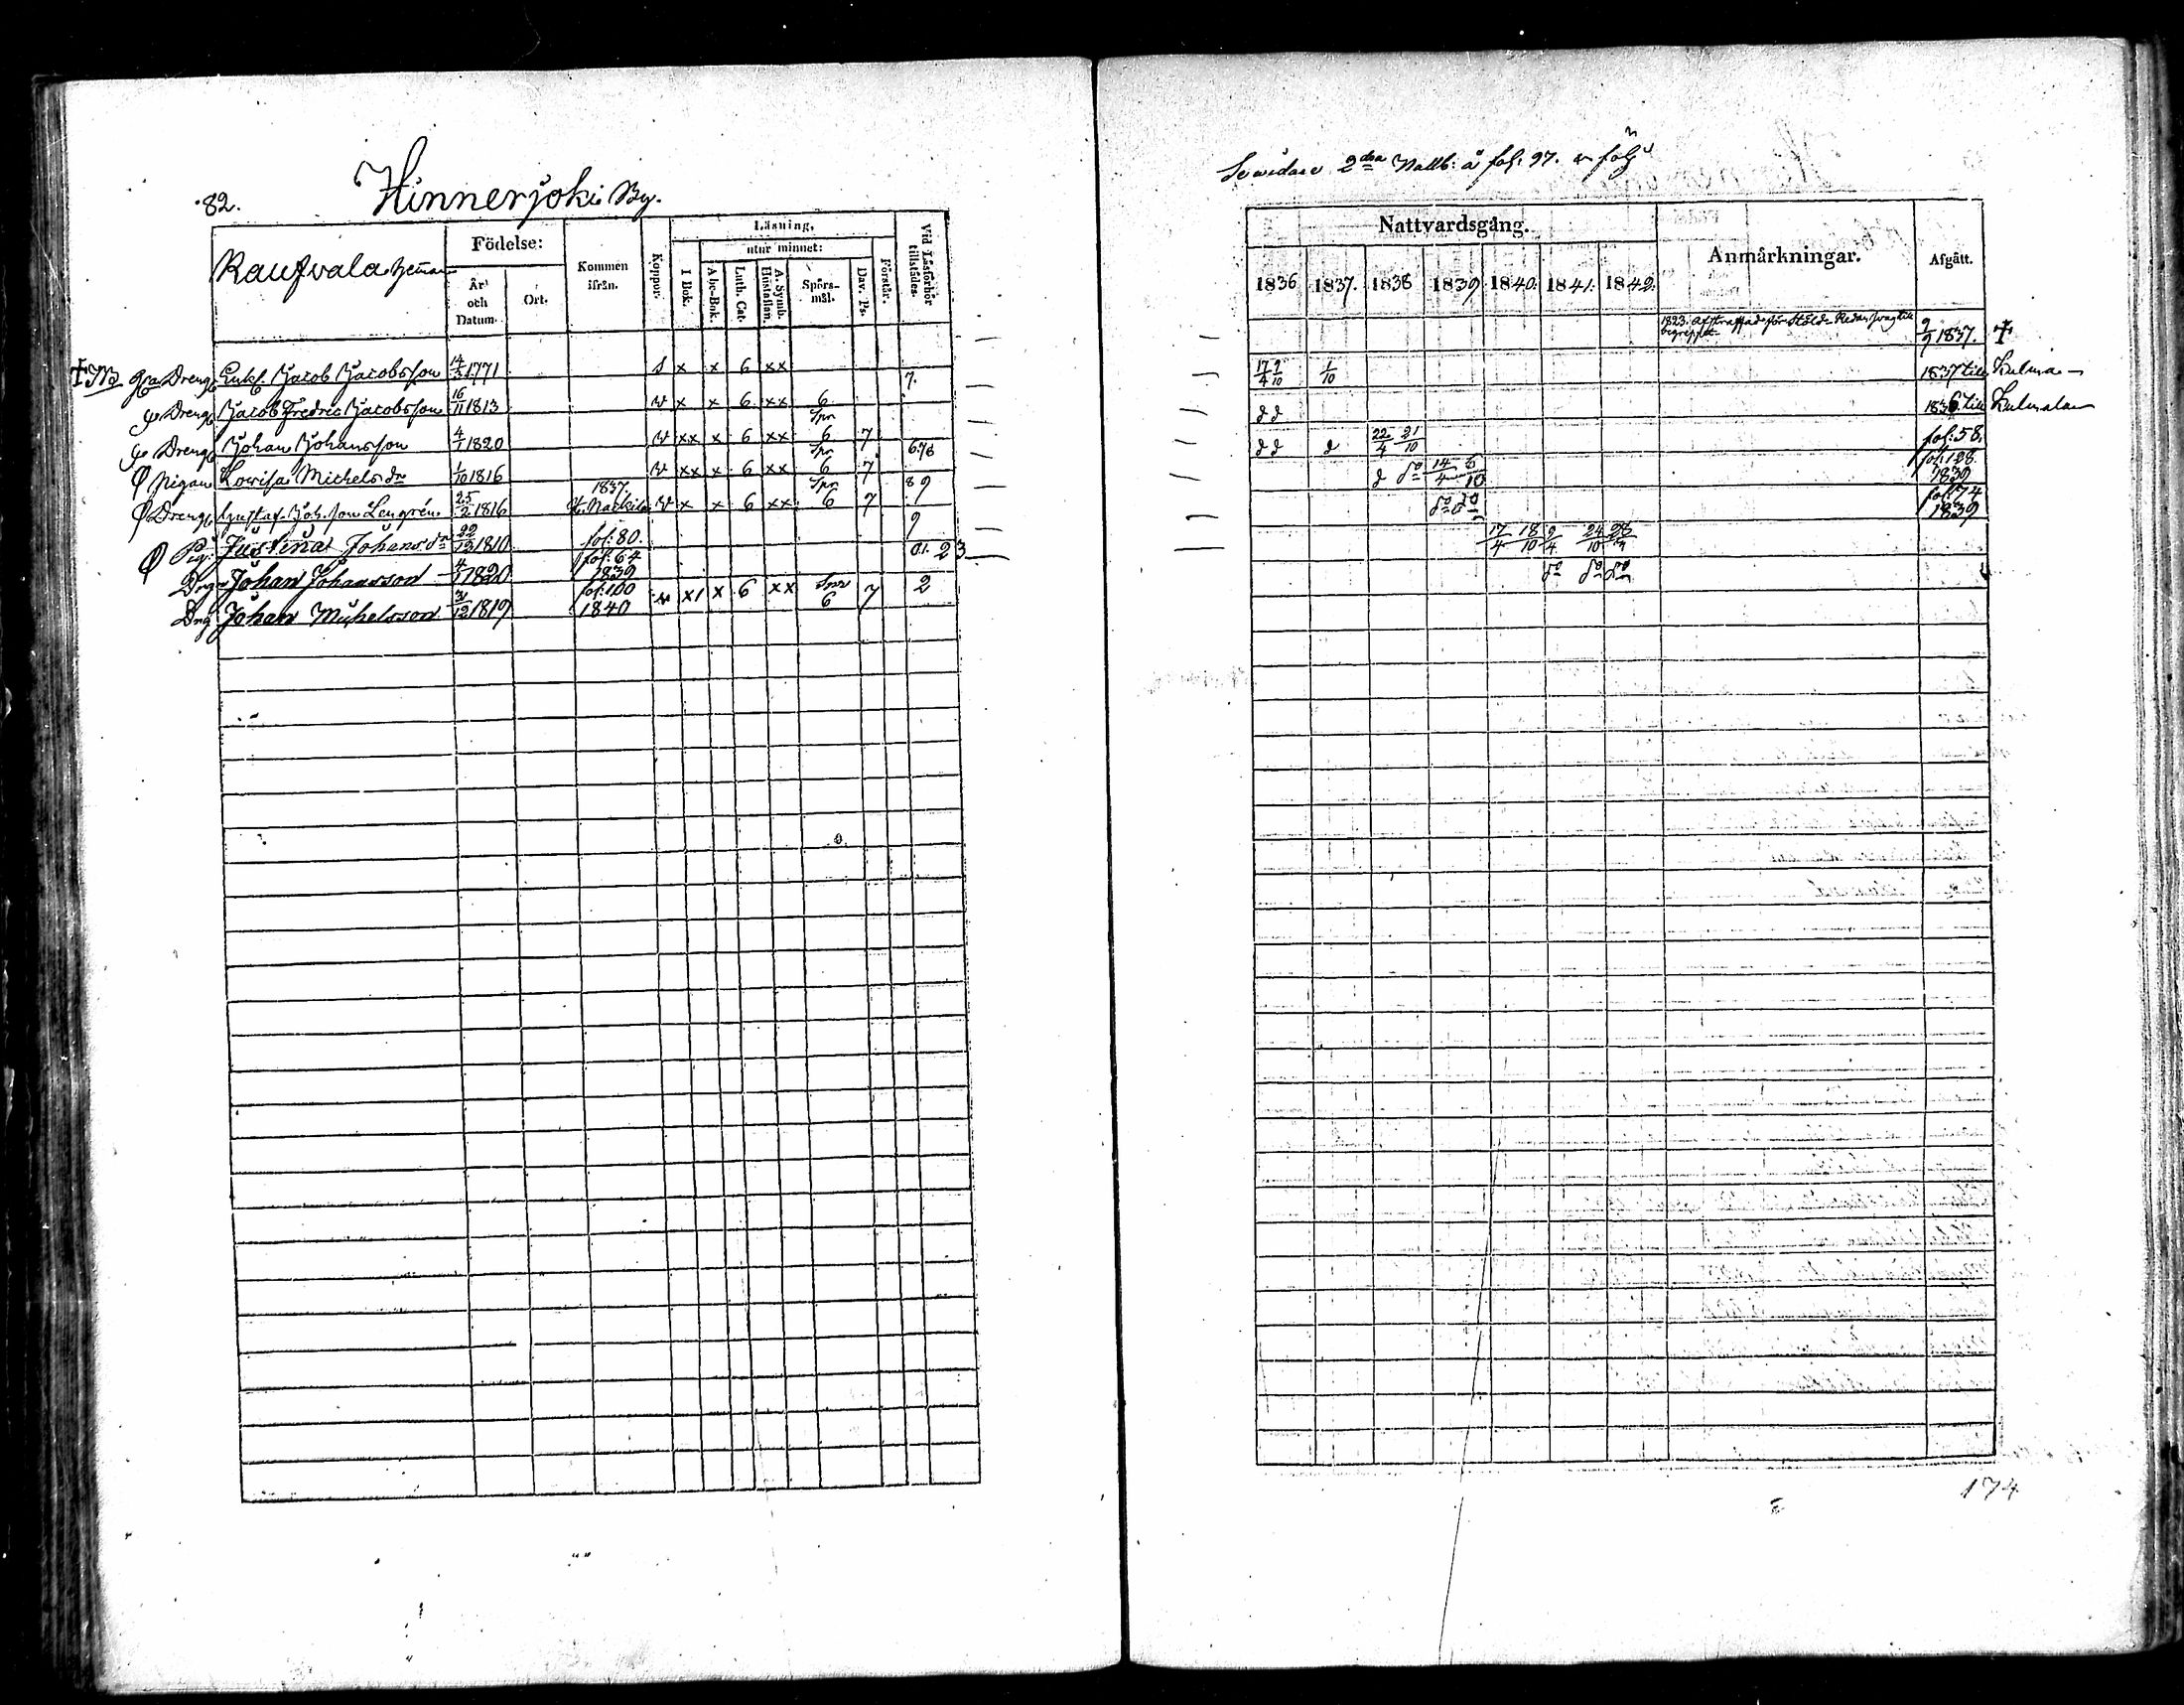 82. Hinnerjoki By.
Raukvala Heman
Födelse:
År och Datum.
Ort.
Kommen ifrån.
Koppor.
Läsning,
utur minnet:
I Bok.
Abc-Bok.
Luth. Cat.
A. Symb. Hustaflan.
Spörs-mål.
Dav. Ps.
Förstår.
Vid Läsförhör tillstädes.
Drengs Enkl. Jacob Jacobsson 14/5 1771 s x x 6 xx
Drengs Jacob Fredric Jacobsson 16/11 1813 v x x 6 xx 6 7.
Drengs Johan Johansson 4/1 1820 v xx x 6 xx Spr 6 7
Pigan Lovisa Michelsdr 1/10 1816 v xx x 6 xx Spr 6 7 678
Drengs Gustaf Joh.son Lengrén 25/2 1816 1837 Nackila v x x 6 xx Spr 6 7 8 9
Pig. Justina Johansdr 22/12 1810 fol: 80. 9
Drg Johan Johansson 4/1 1820 fol: 64 1839 01. 2 3
Drg Johan Michelsson 31/12 1819 fol: 100 1840 v x1 x 6 xx Spr 6 7 2
2dra Nattv: å fol. 97.
Nattvardsgång.
Anmärkningar.
Afgått.
1836 1837. 1838 1839 1840. 1841. 1842.
1823. Afstraffad för Stöld
begreppet 9/9 1837.
17/4 9/10 1/10 1837 till Kulma
d d 1836 till
d d d 22/4 21/10 fol: 58.
d do 14/4 6/10 fol: 128. 1839
do do fol: 74 1839
17/4 18/10 9/4 24/10
do do do
174